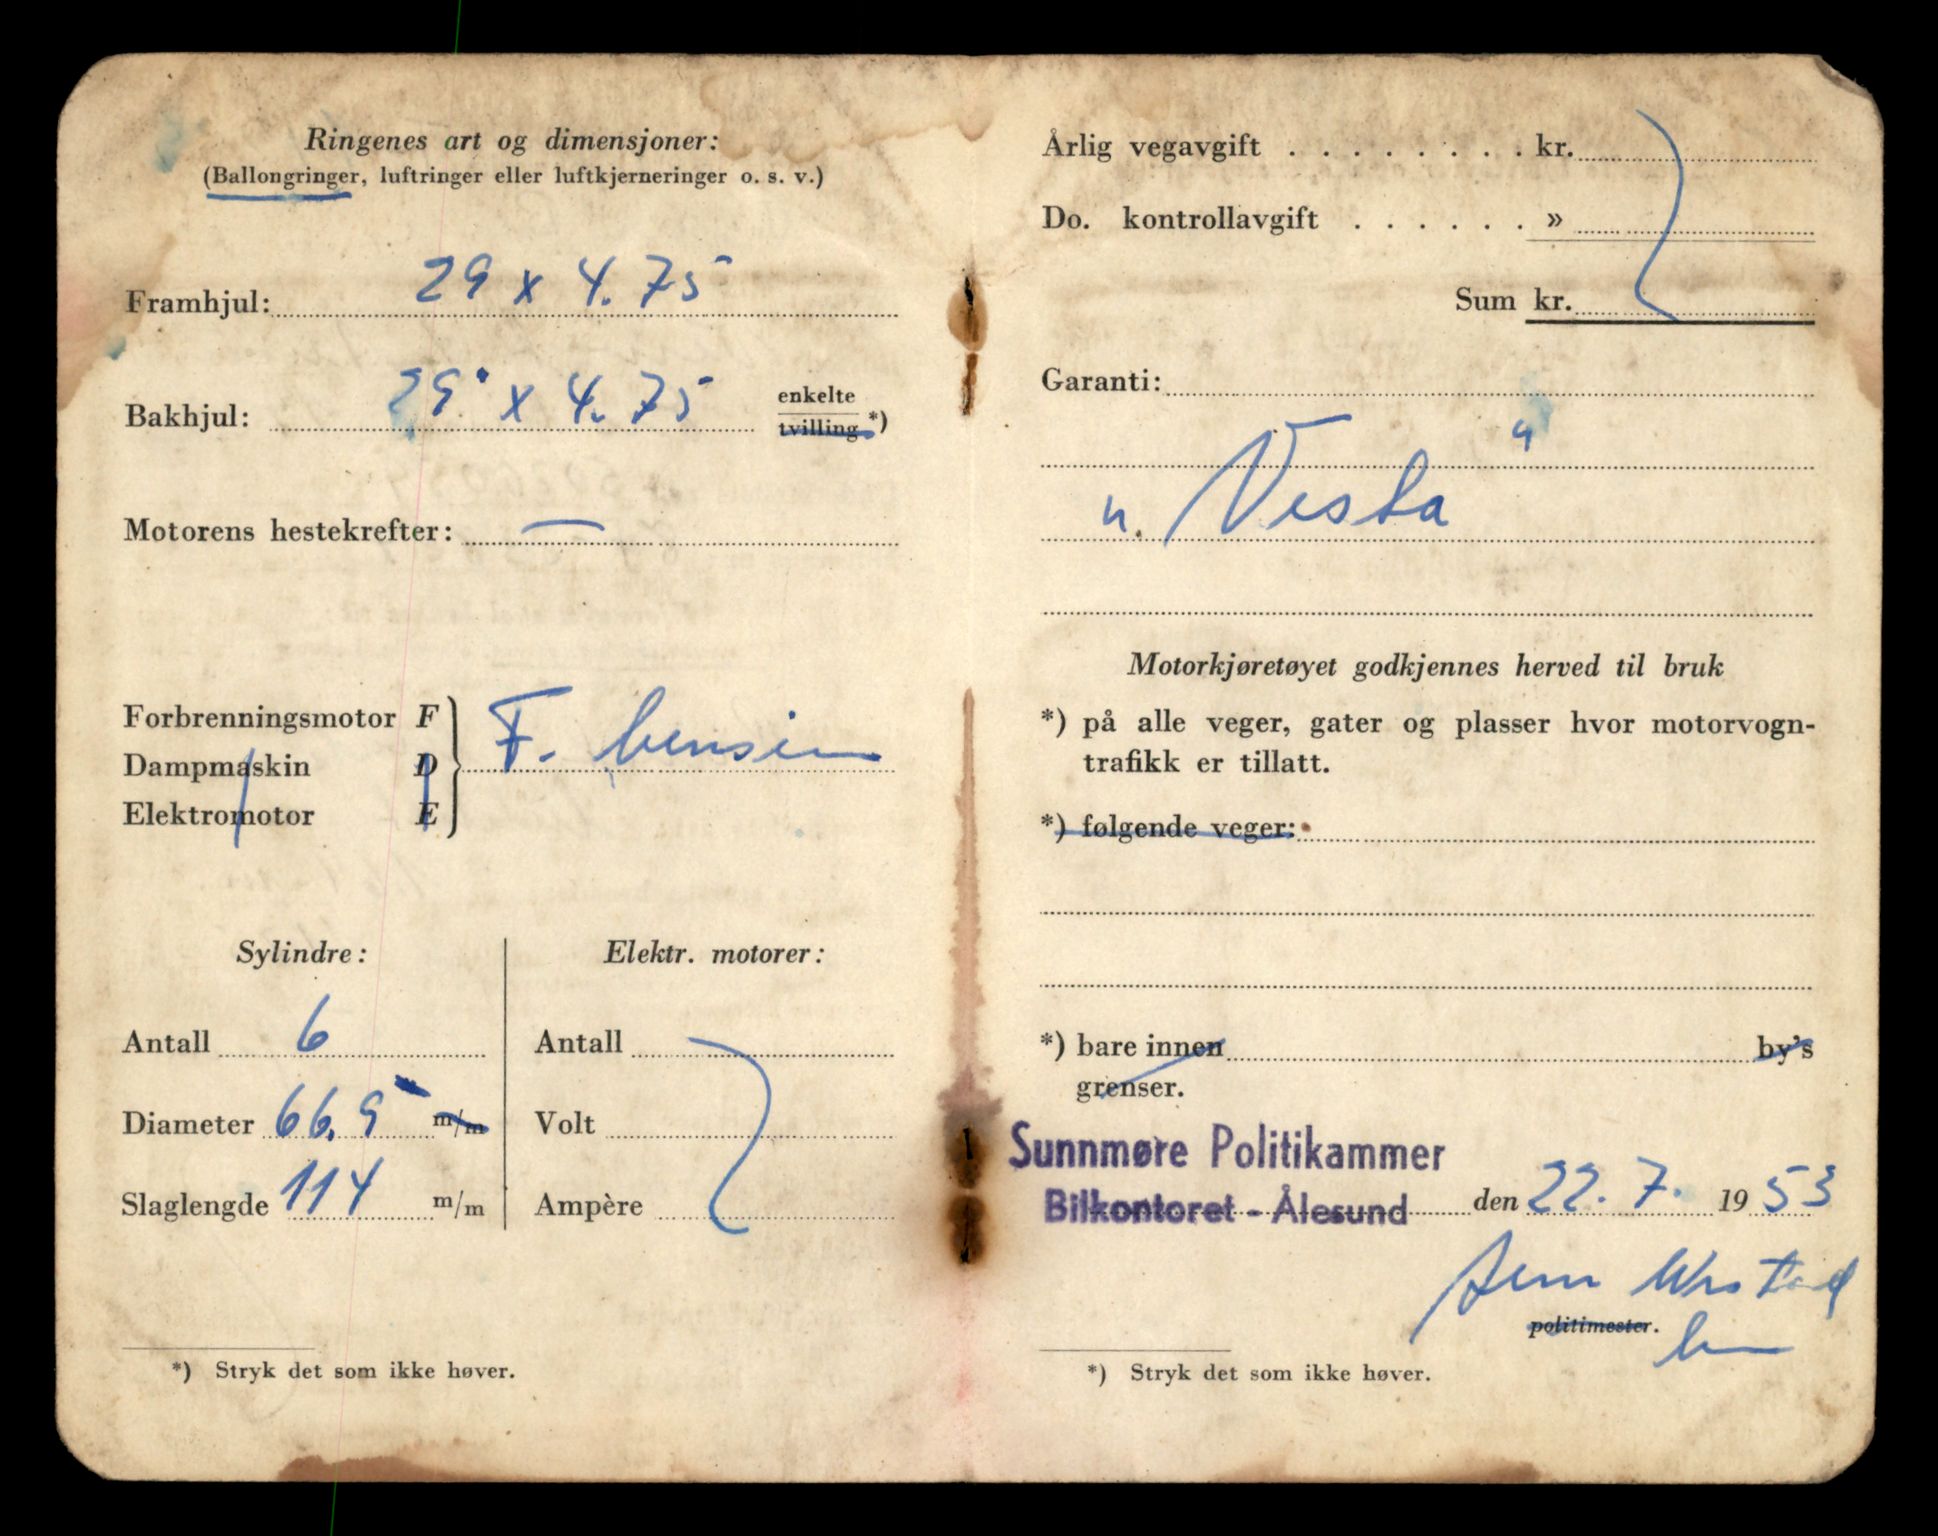 Ringenes art og dimensjoner:
(Ballongringer, luftringer eller luftkjerneringer o. s. v.)
Framhjul: 29 x 4.75
Bakhjul: 29 x 4.75 enkelte
tvilling *)
Motorens hestekrefter: —
Forbrenningsmotor F
Dampmaskin D F. bensin
Elektromotor E
Sylindre:
Antall 6
Diameter 66,9 m/m
Slaglengde 114 m/m
Elektr. motorer:
Antall
Volt
Ampère
*) Stryk det som ikke høver.
Årlig vegavgift . . . . . . . . kr.
Do. kontrollavgift . . . . . . »
Sum kr.
Garanti:
"Vesta"
Motorkjøretøyet godkjennes herved til bruk
*) på alle veger, gater og plasser hvor motorvogn-
trafikk er tillatt.
*) følgende veger:
*) bare innen by's
grenser.
Sunnmøre Politikammer
Bilkontoret - Ålesund den 22. 7. 1953
politimester.
*) Stryk det som ikke høver.